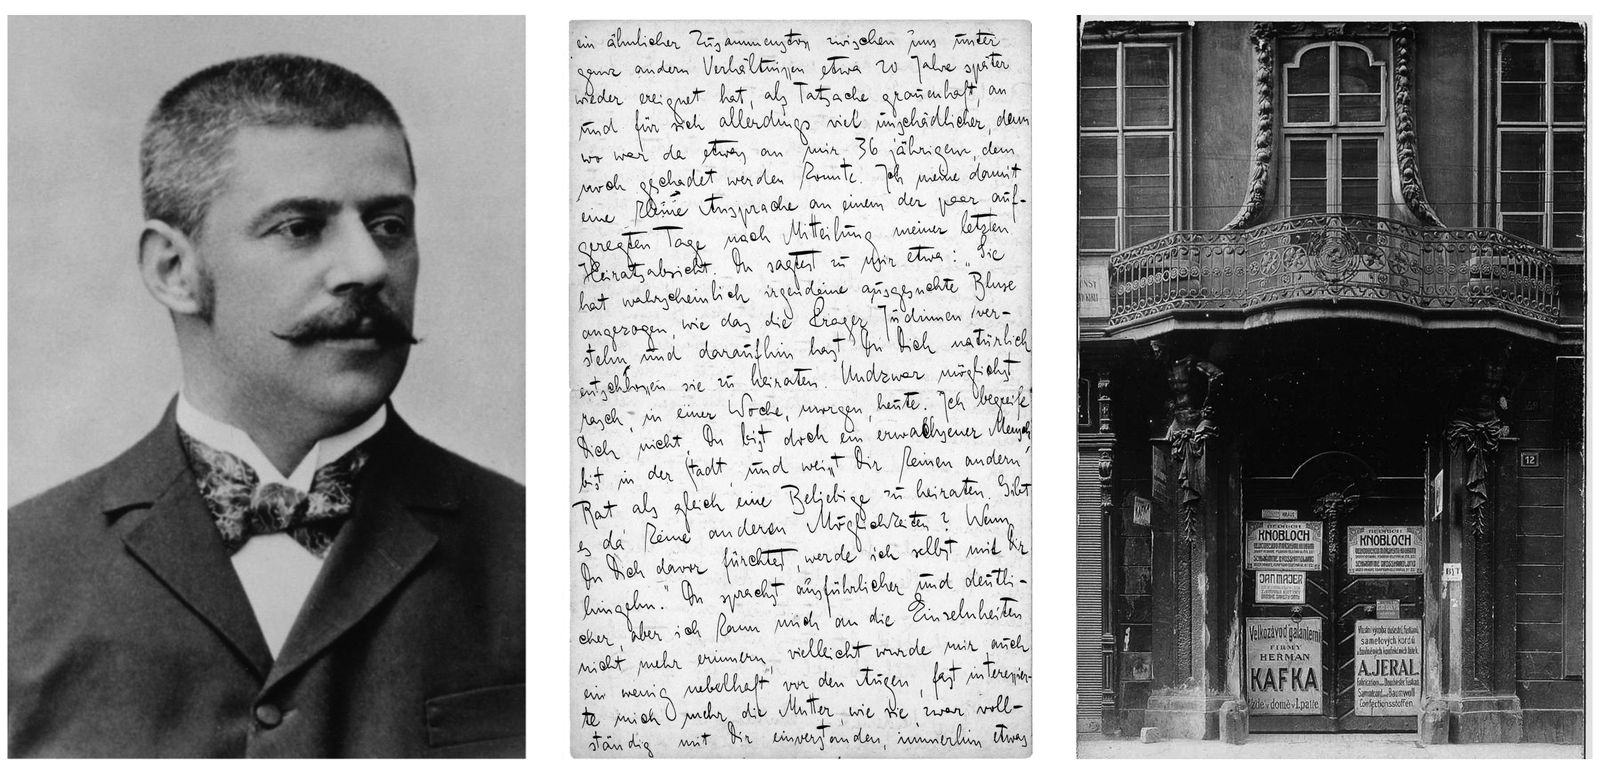 ein ähnlicher Zusammenstoß zwischen uns unter
ganz andern Verhältnissen etwa 20 Jahre später
wieder ereignet hat, als Tatsache grauenhaft, an
und für sich allerdings viel unschädlicher, denn
wo war da etwas an mir 36 jährigem, dem
noch geschadet werden konnte. Ich meine damit
eine kleine Ansprache an einem der paar auf-
geregten Tage nach Mitteilung meiner letzten
Heiratsabsicht. Du sagtest zu mir etwa: „Sie
hat wahrscheinlich irgendeine ausgesuchte Bluse
angezogen, wie das die Prager Jüdinnen ver-
stehn und daraufhin hast Du Dich natürlich
entschlossen sie zu heiraten. Undzwar möglichst
rasch, in einer Woche, morgen, heute. Ich begreife
Dich nicht, Du bist doch ein erwachsener Mensch
bist in der Stadt, und weißt Dir keinen andern
Rat als gleich eine Beliebige zu heiraten. Gibt
es da keine anderen Möglichkeiten? Wenn
Du Dich davor fürchtest, werde ich selbst mit Dir
hingehn." Du sprachst ausführlicher und deutli-
cher, aber ich kann mich an die Einzelnheiten
nicht mehr erinnern, vielleicht wurde mir auch
ein wenig nebelhaft vor den Augen, fast interessier-
te mich mehr die Mutter, wie sie, zwar voll-
ständig mit Dir einverstanden, immerhin etwas
12
KNOBLOCH
KNOBLOCH
JAN MAJER
BIT
Velkozávod galanterní
FIRMY
HEŘMAN
KAFKA
zde v domě v I. patře
A. JERAL
Samtcord und Baumwoll
Confectionsstoffen.